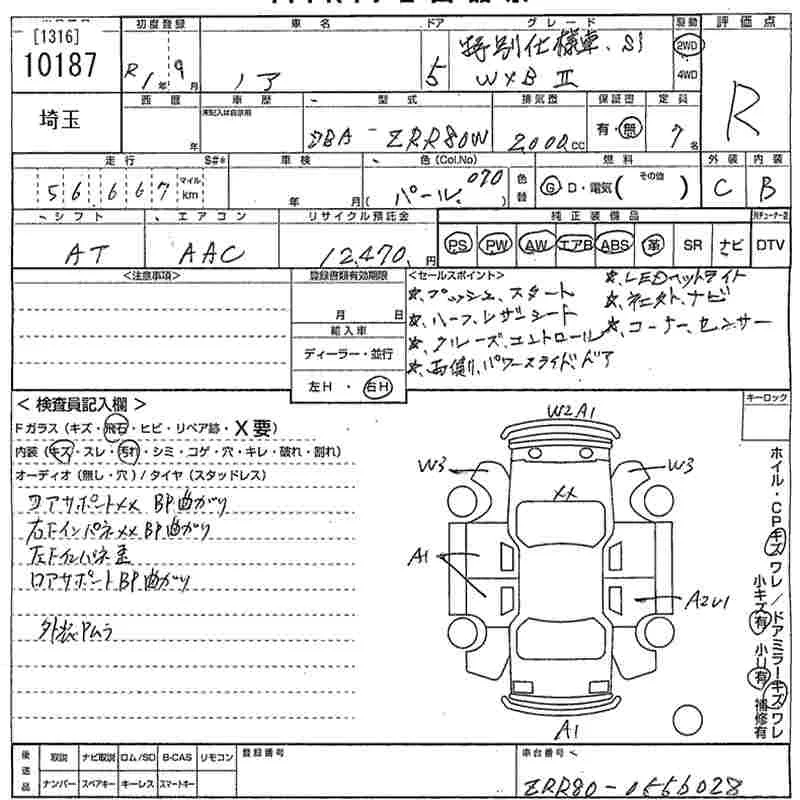 [1316]
10187
埼玉
初度登録
R1年9月
車名
ノア
ドア
5
グレード
特別仕様車.Si
W×B Ⅱ
駆動
2WD
4WD
評価点
R
西暦
年
車歴
未記入は自家用
型式
DBA-ZRR80W
排気量
2000cc
保証書
有・無
定員
7名
走行
56667
マイル
km
S#*
車検
年 月
色(Col.No)
(パール. 070)
色替
燃料
G D・電気( その他 )
外装
C
内装
B
シフト
AT
エアコン
AAC
リサイクル預託金
12,470円
純正装備品
PS PW AW エアB ABS 革 SR ナビ DTV
<注意事項>
登録書類有効期限
月 日
輸入車
ディーラー・並行
左H・右H
<セールスポイント>
☆.プッシュ.スタート
☆.ハーフ.レザーシート
☆.クルーズ.コントロール
☆.両側.パワースライドドア
☆.LEDヘッドライト
☆.コーナーセンサー
<検査員記入欄>
Fガラス(キズ・飛石・ヒビ・リペア跡・X要)
内装(キズ・スレ・汚れ・シミ・コゲ・穴・キレ・破れ・割れ)
オーディオ(無し・穴)/タイヤ(スタッドレス)
コアサポートXX BP曲がり
右Fインパネ XX BP曲がり
左Fインパネ歪
ロアサポートBP曲がり
外装Pムラ
W2A1
W3
W3
XX
A1
A2U1
A1
キーロック
ホイル・CPキズ ワレ/ドアミラーキズワレ
小キズ有 小U有 補修有
後送品
取説 ナビ取説 ロム/SD B-CAS リモコン
ナンバー スペアキー キーレス スマートキー
登録番号
車台番号
ZRR80-0556028